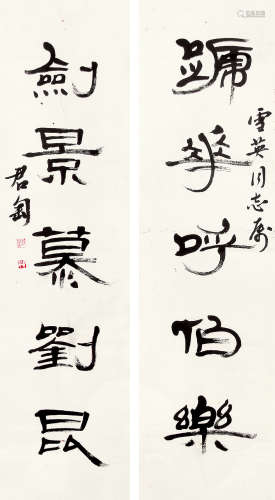 蹏華呼伯樂
雪英同志属
劍景慕劉昆
君匋